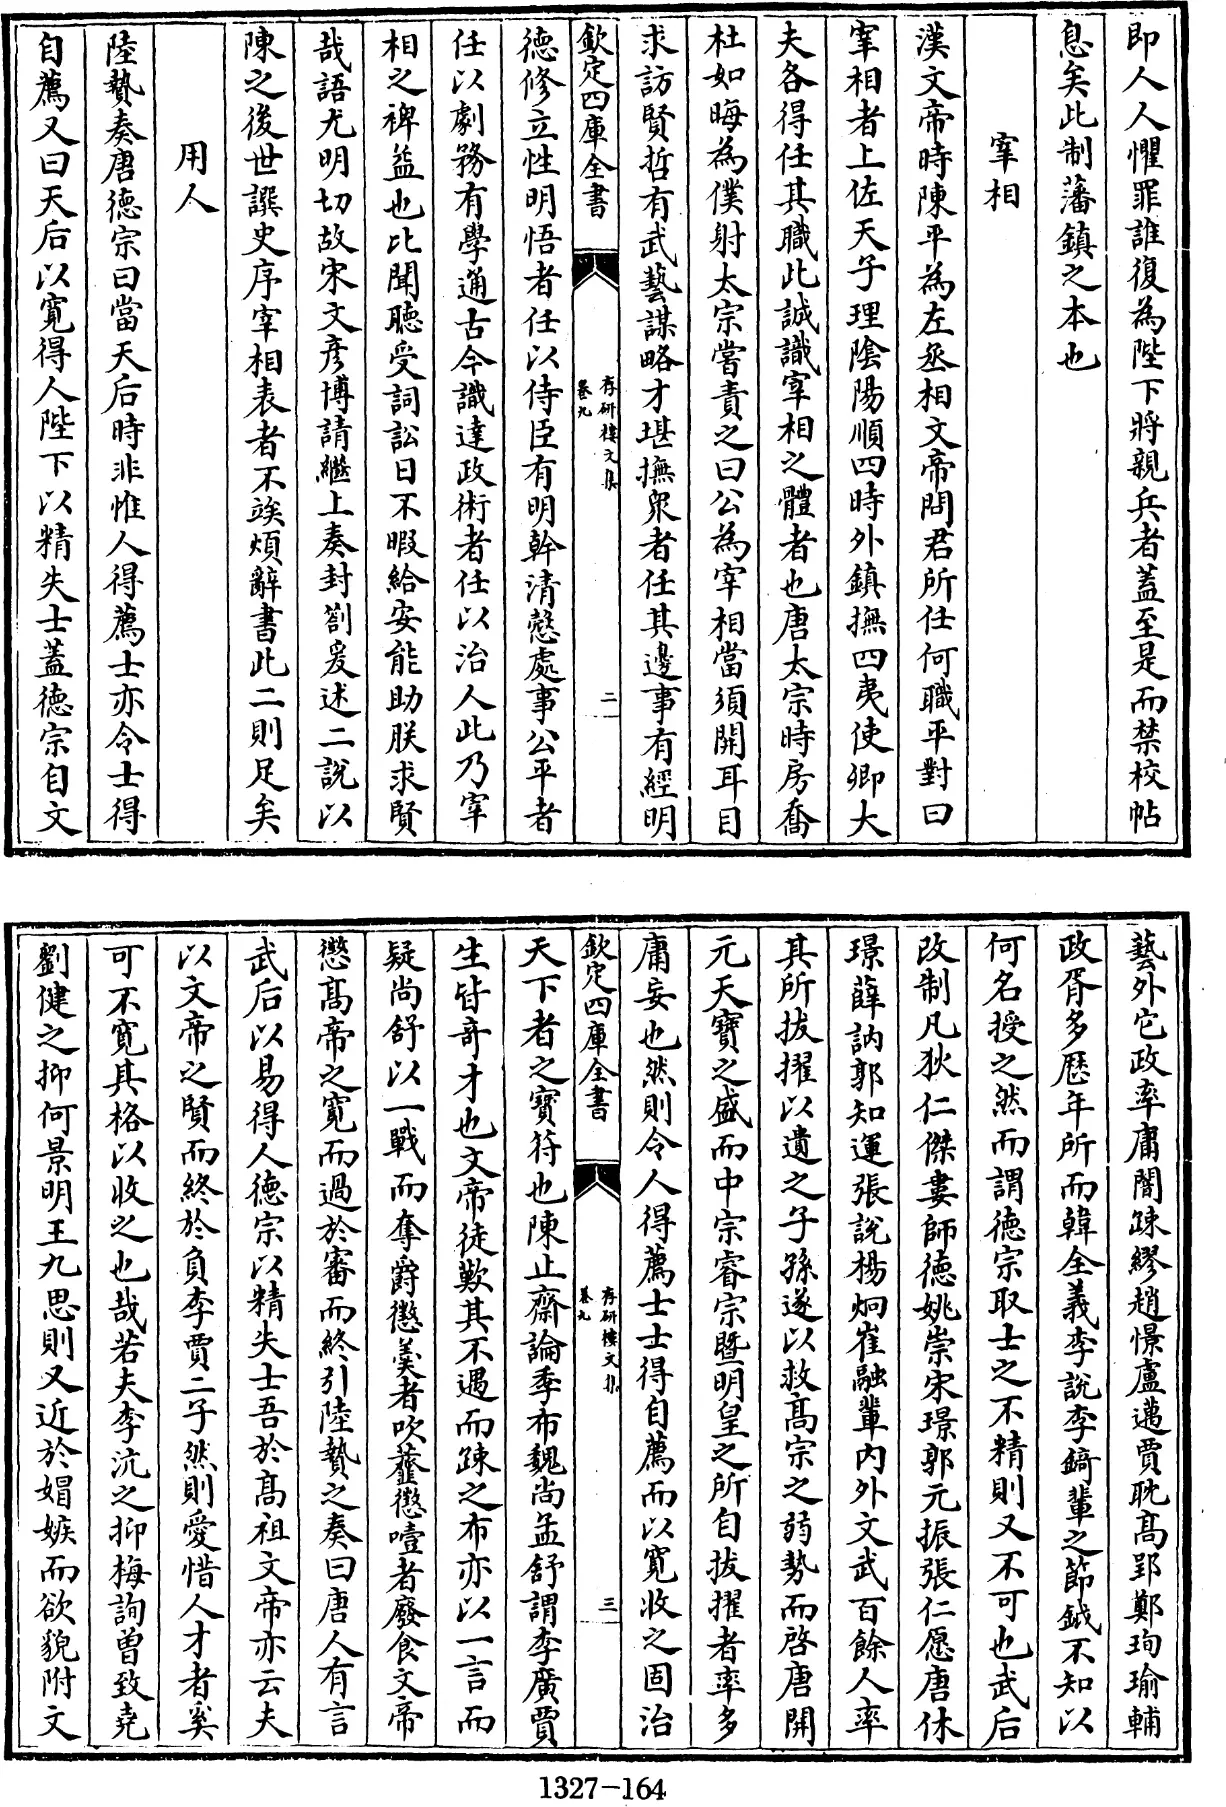 即人人懼罪誰復為陛下將親兵者蓋至是而禁校帖
息矣此制藩鎮之本也
宰相
漢文帝時陳平為左丞相文帝問君所任何職平對曰
宰相者上佐天子理陰陽順四時外鎮撫四夷使卿大
夫各得任其職此誠識宰相之體者也唐太宗時房喬
杜如晦為僕射太宗嘗責之曰公為宰相當須開耳目
求訪賢哲有武藝謀略才堪撫衆者任其邊事有經明
欽定四庫全書
存研樓文集
卷九
二
德修立性明悟者任以侍臣有明幹清慤處事公平者
任以劇務有學通古今識達政術者任以治人此乃宰
相之裨益也比聞聽受詞訟日不暇給安能助朕求賢
哉語尤明切故宋文彦博請繼上奏封劄爰述二說以
陳之後世譔史序宰相表者不竢煩辭書此二則足矣
用人
陸贄奏唐德宗曰當天后時非惟人得薦士亦令士得
自薦又曰天后以寛得人陛下以精失士蓋德宗自文
藝外它政率庸闇疎繆趙憬盧邁賈耽髙郢鄭珣瑜輔
政胥多歷年所而韓全義李說李錡輩之節鉞不知以
何名授之然而謂德宗取士之不精則又不可也武后
改制凡狄仁傑婁師德姚崇宋璟郭元振張仁愿唐休
璟薛訥郭知運張說楊炯崔融輩内外文武百餘人率
其所拔擢以遺之子孫遂以救髙宗之弱勢而啓唐開
元天寶之盛而中宗睿宗暨明皇之所自拔擢者率多
庸妄也然則令人得薦士士得自薦而以寛收之固治
欽定四庫全書
存研樓文集
卷九
三
天下者之寶符也陳止齋論季布魏尚孟舒謂李廣賈
生皆奇才也文帝徒歎其不遇而疎之布亦以一言而
疑尚舒以一戰而奪爵懲羮者吹虀懲噎者廢食文帝
懲髙帝之寛而過於審而終引陸贄之奏曰唐人有言
武后以易得人德宗以精失士吾於髙祖文帝亦云夫
以文帝之賢而終於負李賈二子然則愛惜人才者奚
可不寛其格以收之也哉若夫李沆之抑梅詢曽致堯
劉健之抑何景明王九思則又近於媢嫉而欲貌附文
1327-164